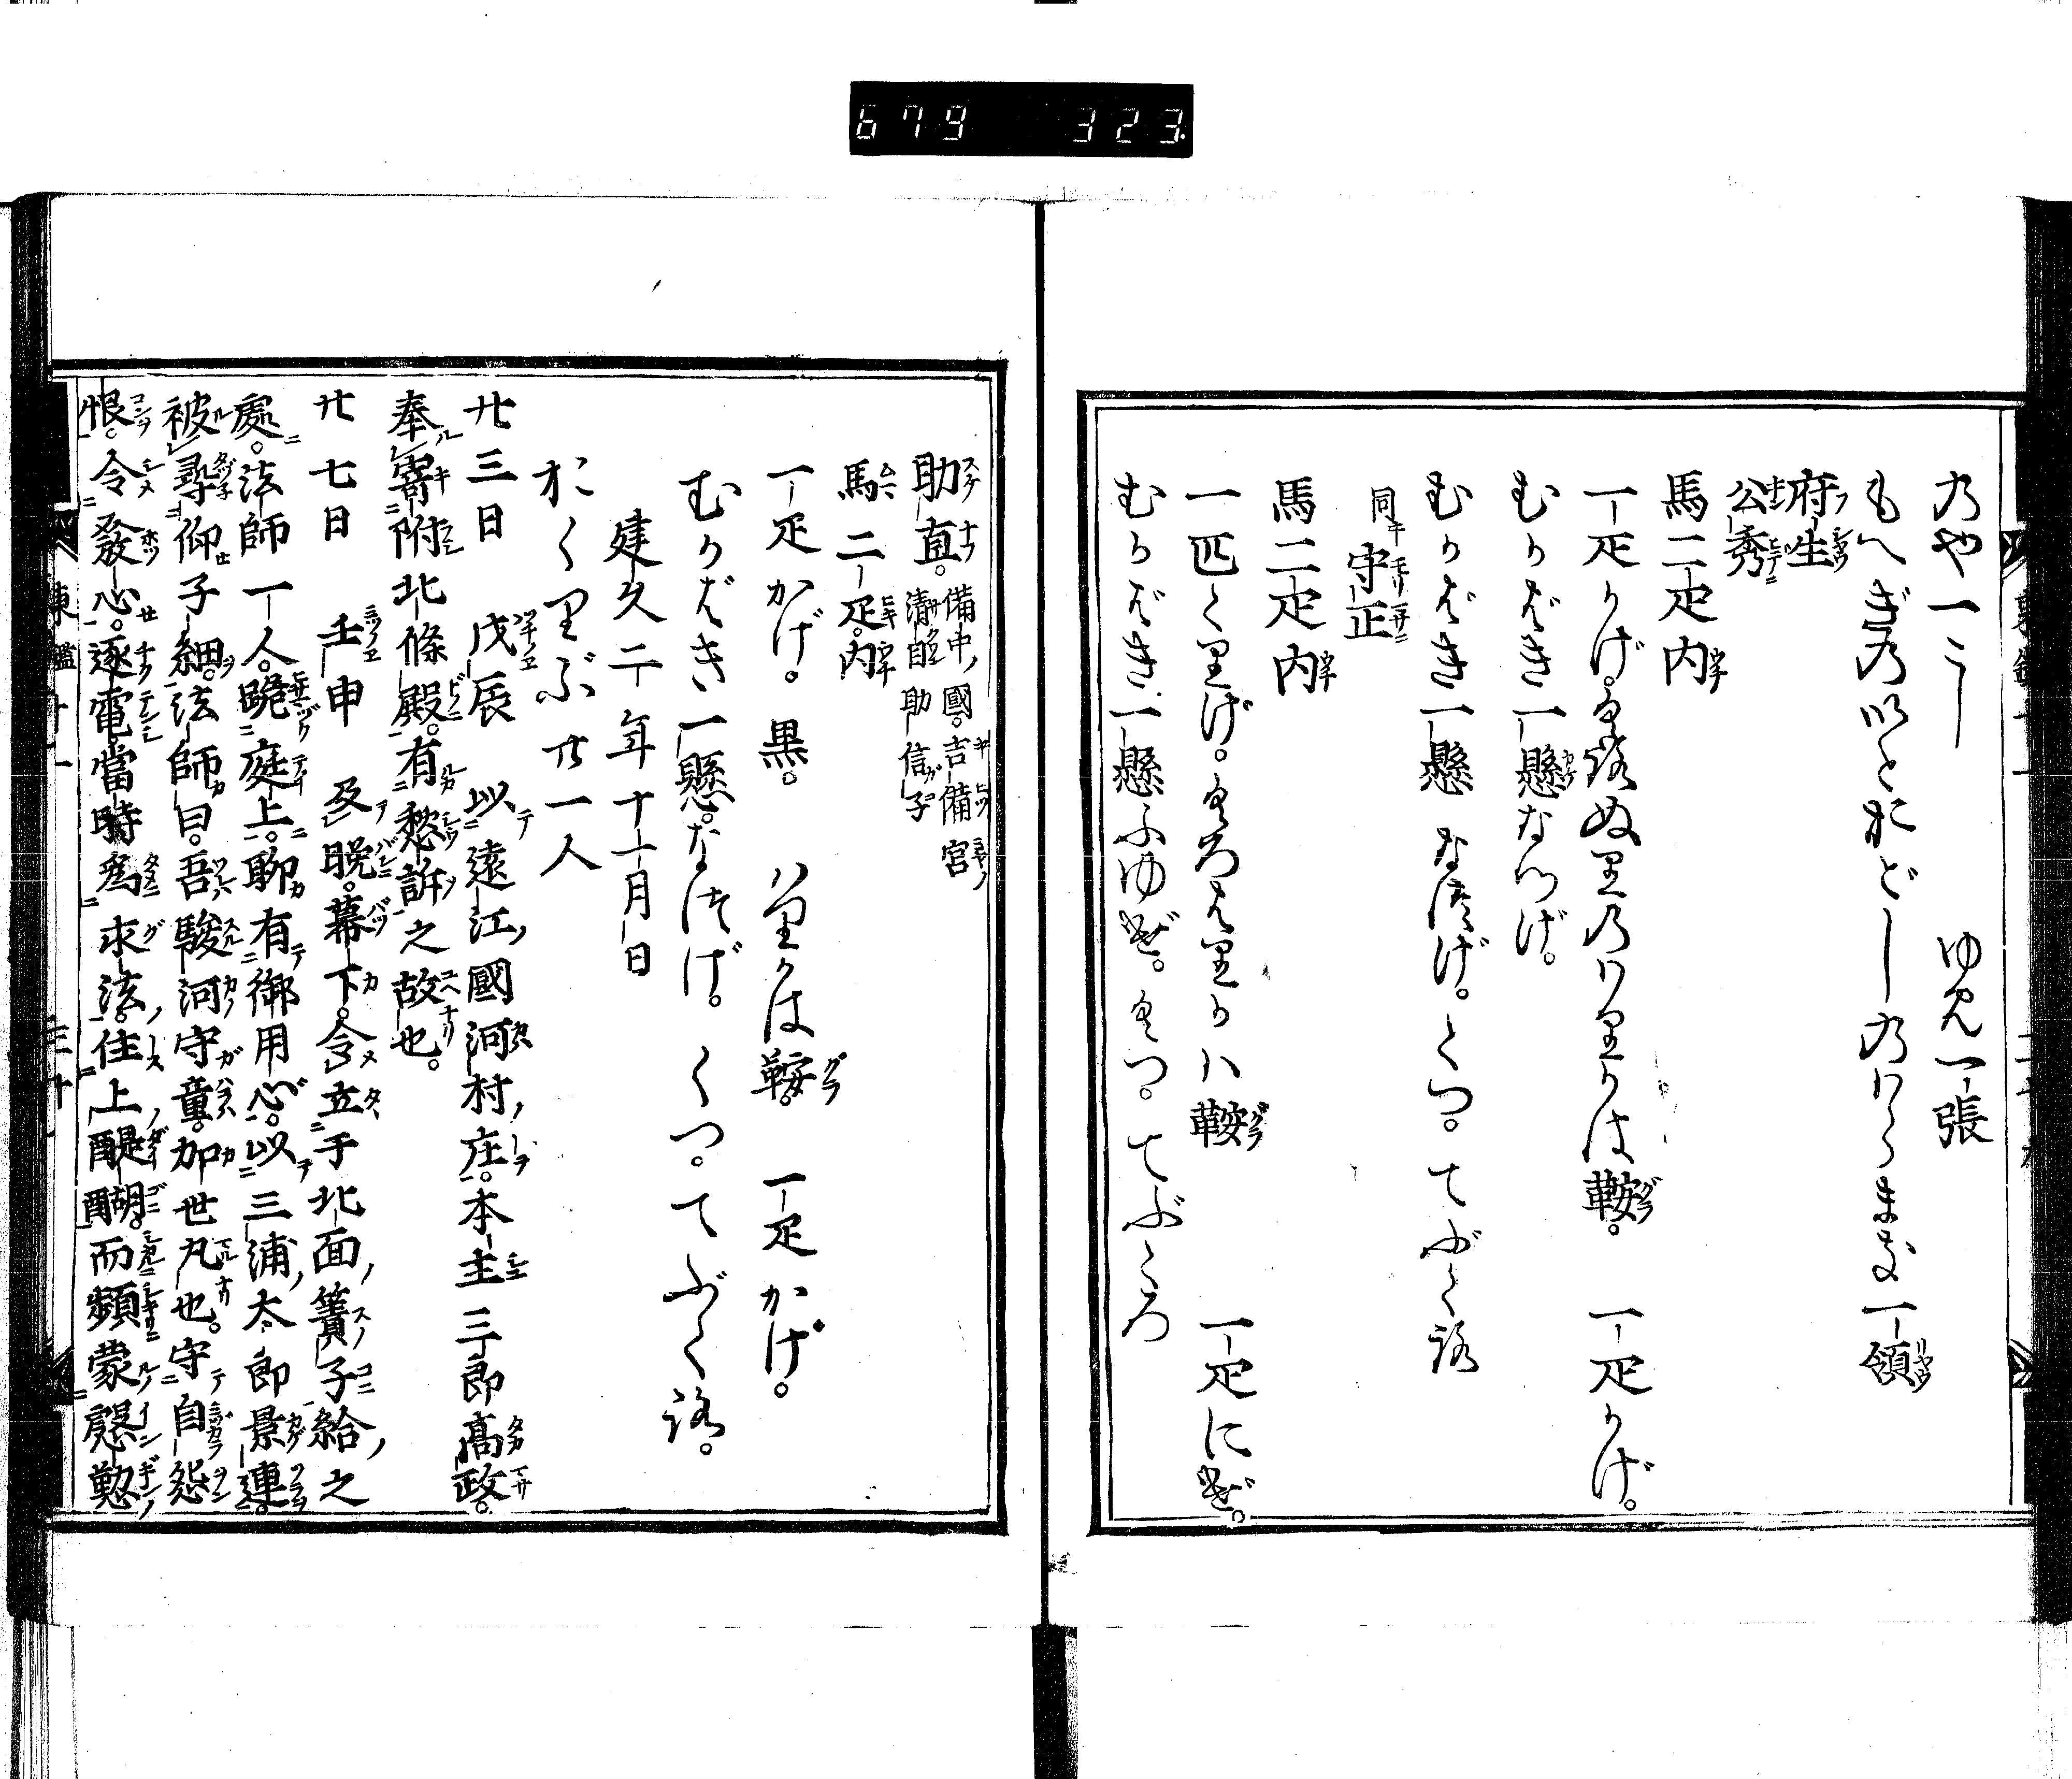 679 323
乃や一こし ゆみ一張
もへぎ乃いとおどし乃はらまき一領
府生
公秀
馬二疋内
一疋かげ。くろぬり乃はりかは鞍。 一疋かげ。
むかばき一懸なつげ。
むかばき一懸なつげ。くつ。てぶくろ
同守正
馬二疋内
一匹くりげ。くろぬりかは鞍 一疋にげ。
むかばき一懸ふゆげ。くつ。てぶくろ
助直。備中國。吉備宮
清目助信子
馬二疋。内
一疋かげ。黒。はりかは鞍。 一疋かげ。
むかばき一懸。なつげ。くつ。てぶくろ。
建久二年十一月日
おくりぶ廿一人
廿三日 戊辰 以遠江國河村庄。本主三郎高政。
奉寄附北條殿。有愁訴之故也。
廿七日 壬申 及晩。幕下。令立于北面簀子給之
處。法師一人。跪庭上。聊有御用心。以三浦太郎景連。
被尋仰子細。法師曰。吾駿河守童。加世丸也。守自怨
恨。令發心。逐電。當時爲求法。住上醍醐。而頻蒙慇懃
東鑑十一 三十